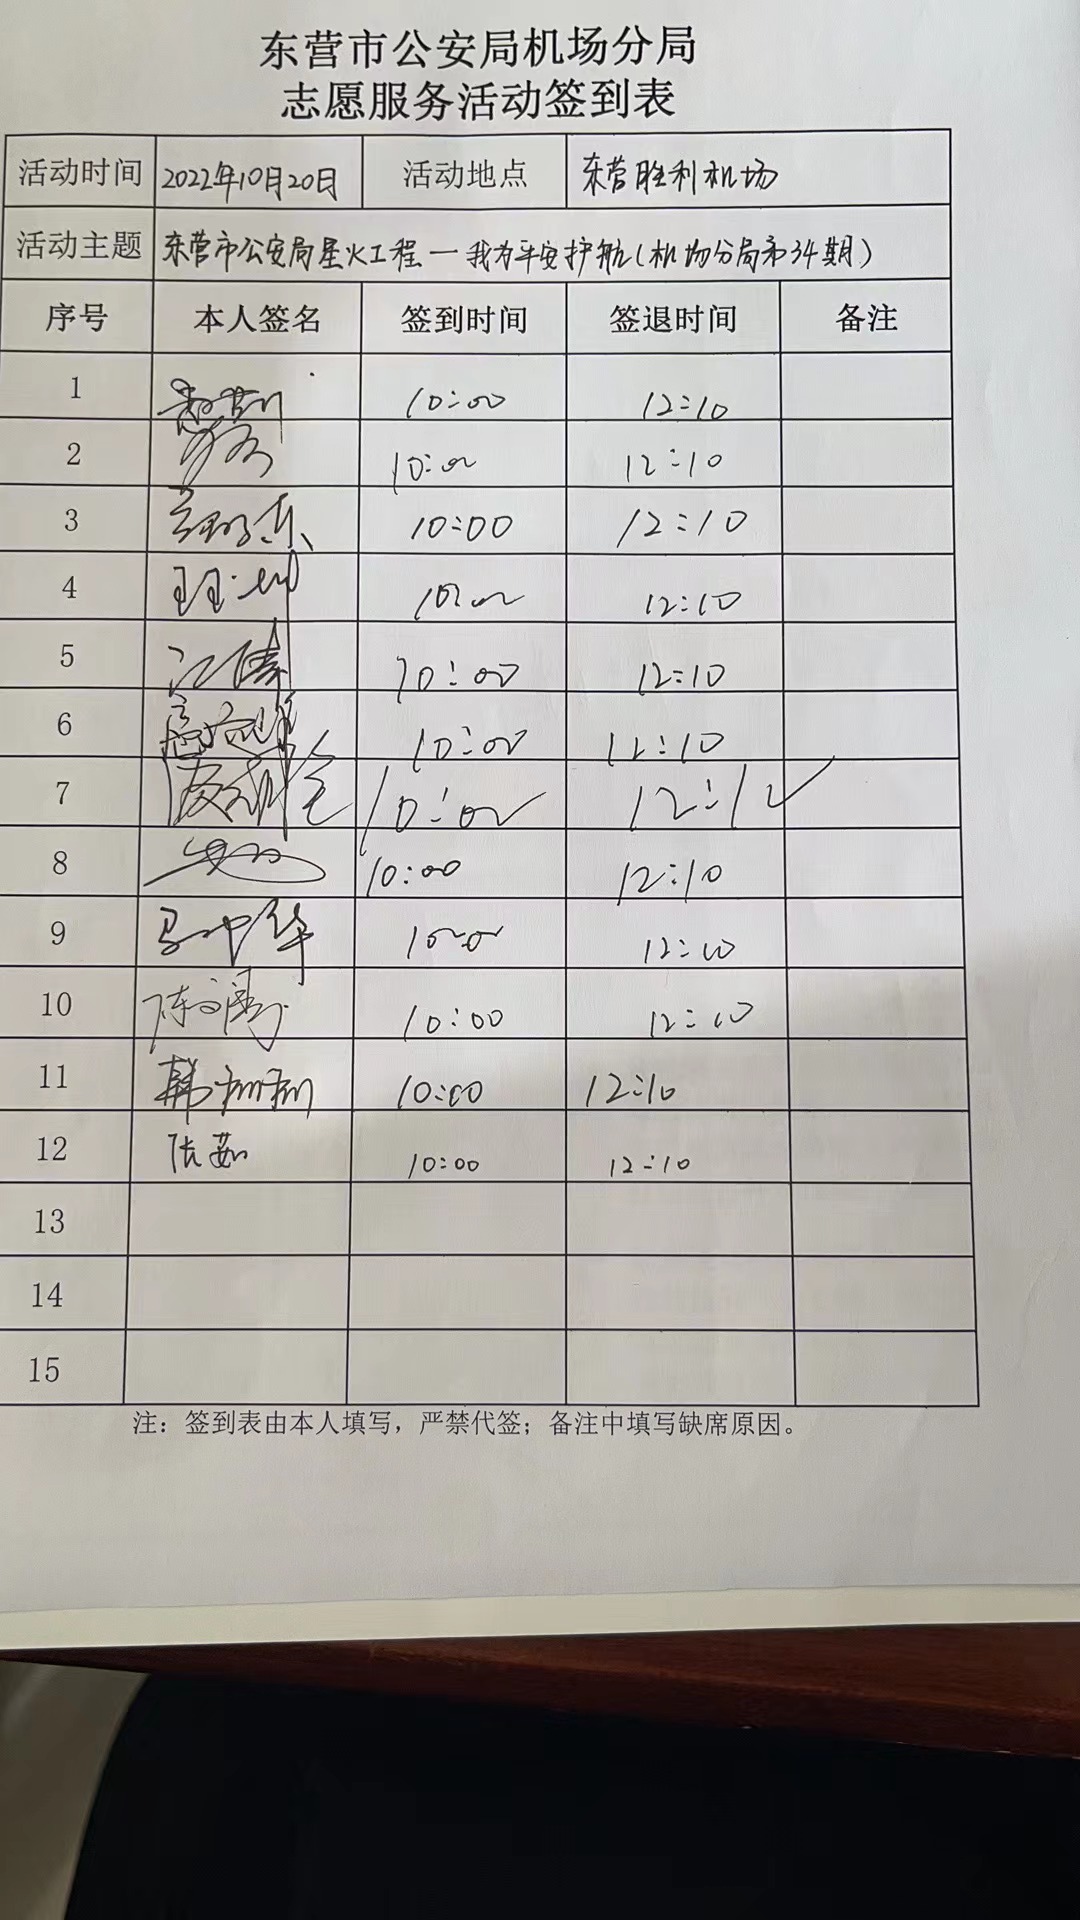 东营市公安局机场分局
志愿服务活动签到表
活动时间 2022年10月20日 活动地点 东营胜利机场
活动主题 东营市公安局星火工程一我为平安护航(机场分局第34期)
序号 本人签名 签到时间 签退时间 备注
1 10:00 12:10
2 10:00 12:10
3 10:00 12:10
4 10:00 12:10
5 10:00 12:10
6 10:00 12:10
7 10:00 12:10
8 10:00 12:10
9 马中华 10:00 12:10
10 10:00 12:10
11 韩 10:00 12:10
12 张茹 10:00 12:10
13
14
15
注：签到表由本人填写，严禁代签；备注中填写缺席原因。